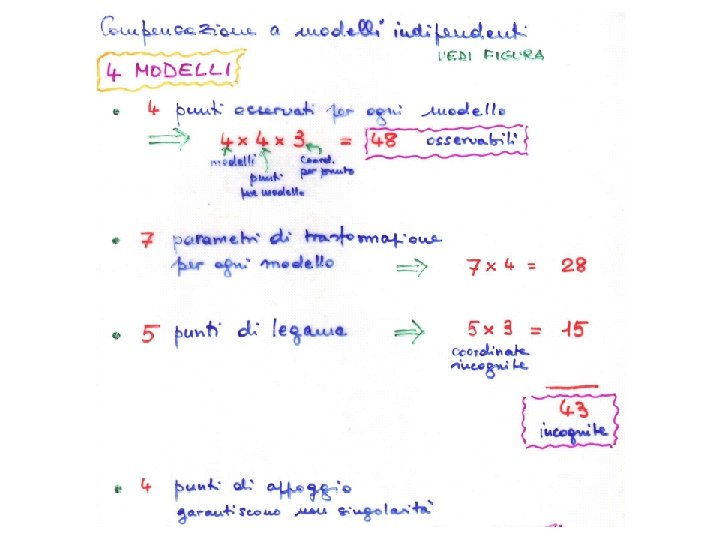 Compensazione a modelli indipendenti
VEDI FIGURA
4 MODELLI
• 4 punti osservati per ogni modello
⟹ 4 x 4 x 3 = 48 osservabili
modelli
punti per modello
coord. per punto
• 7 parametri di trasformazione
per ogni modello ⟹ 7 x 4 = 28
• 5 punti di legame ⟹ 5 x 3 = 15
coordinate
incognite
43
incognite
• 4 punti di appoggio
garantiscono non singolarità